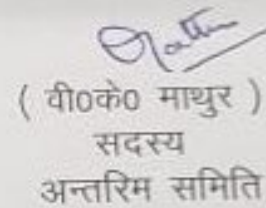 ( वी0के0 माथुर )
सदस्य
अन्तरिम समिति